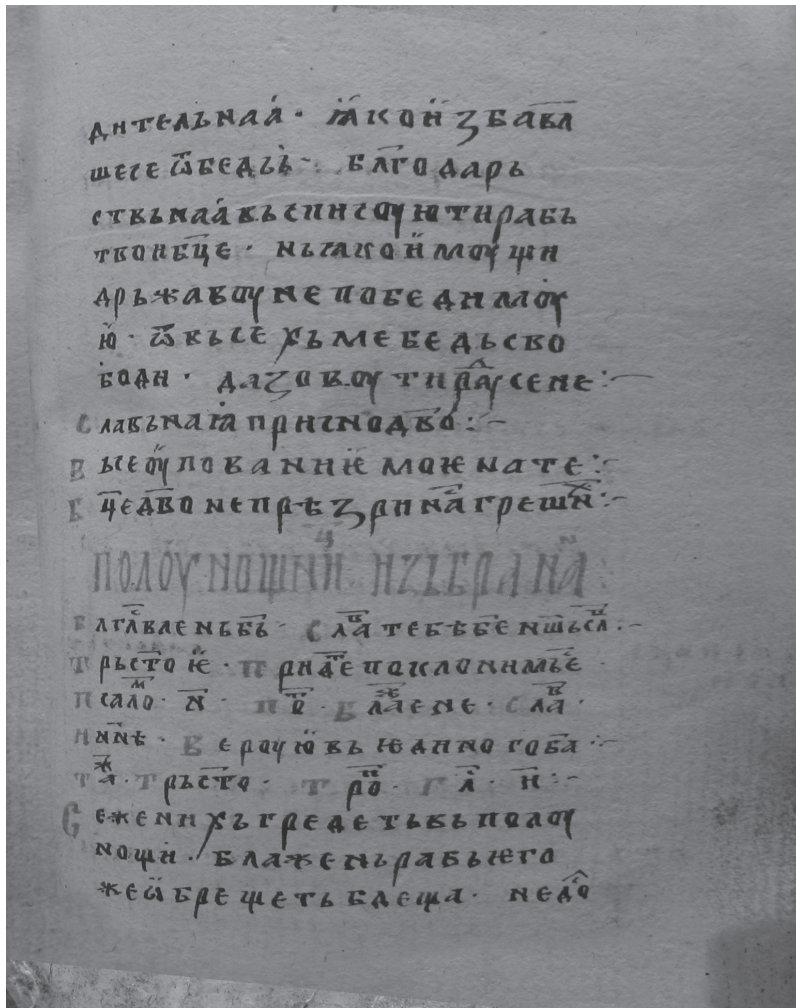 дитель́наа́ · ꙗ҆ко и҆збавл҄
шесе ѿ бедь̀ · бл҃годарь
ствьнаа́ вьсписоую ти рабь
твои бц҃е · нь ꙗко и҆моущи
дрьжавоу непобедимоу́
ю҆ · ѿ вьсехь ме бедь сво
боди · да зовоу ти раⷣусе не :~
славьнаꙗ присно дв҃о :~
вьсе оу҆пованиѥ моѥ на те :~
бц҃е дв҃о не прѣзри на́ грешниⷯ :~
полоу́нощниⷰ҇ изьбранⷩа҇ :
блгⷭ҇влень б҃ь · слаⷡ тебѣ б҃е нш҃ь слаⷡ :~
трьст҃оѥ · приⷣте поклонимьⷭ҇е ·
псалоⷨ · н҃ · по · блаⷤене · слаⷡ ·
и нн҃ꙗ · вероую҆ вь ѥдиного ба҃ :~
таⷤ · трьст҃о · троⷫ · гла҇ · и҃ :~
Се женихь гредеть вь полоу
нощи · блажень рабь ѥго
же ѡ҆брещеть бдеща · недоⷭ҇